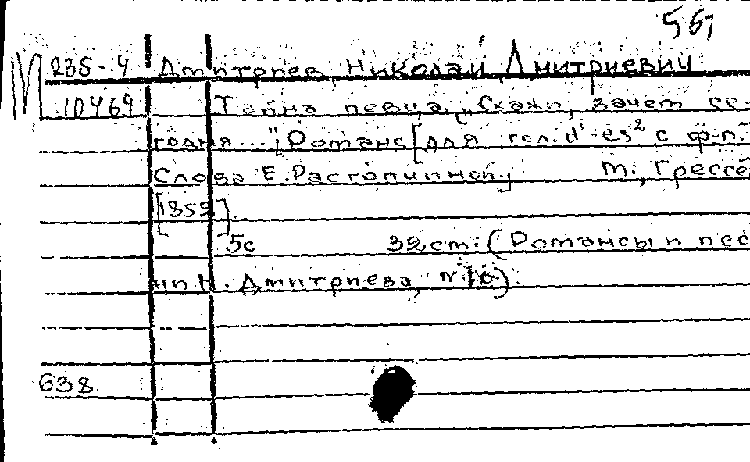 567
М 235-4 Дмитриев, Николай Дмитриевич
10469 Тайна певца. „Скажи, зачем се-
годня..." [Романс] для гол. d¹-es² с ф-п.
Слова Е. Растопчиной.] М., Грессе
[1852].
5с 32cm. (Романсы и пес
ни Н. Дмитриева, №10).
638